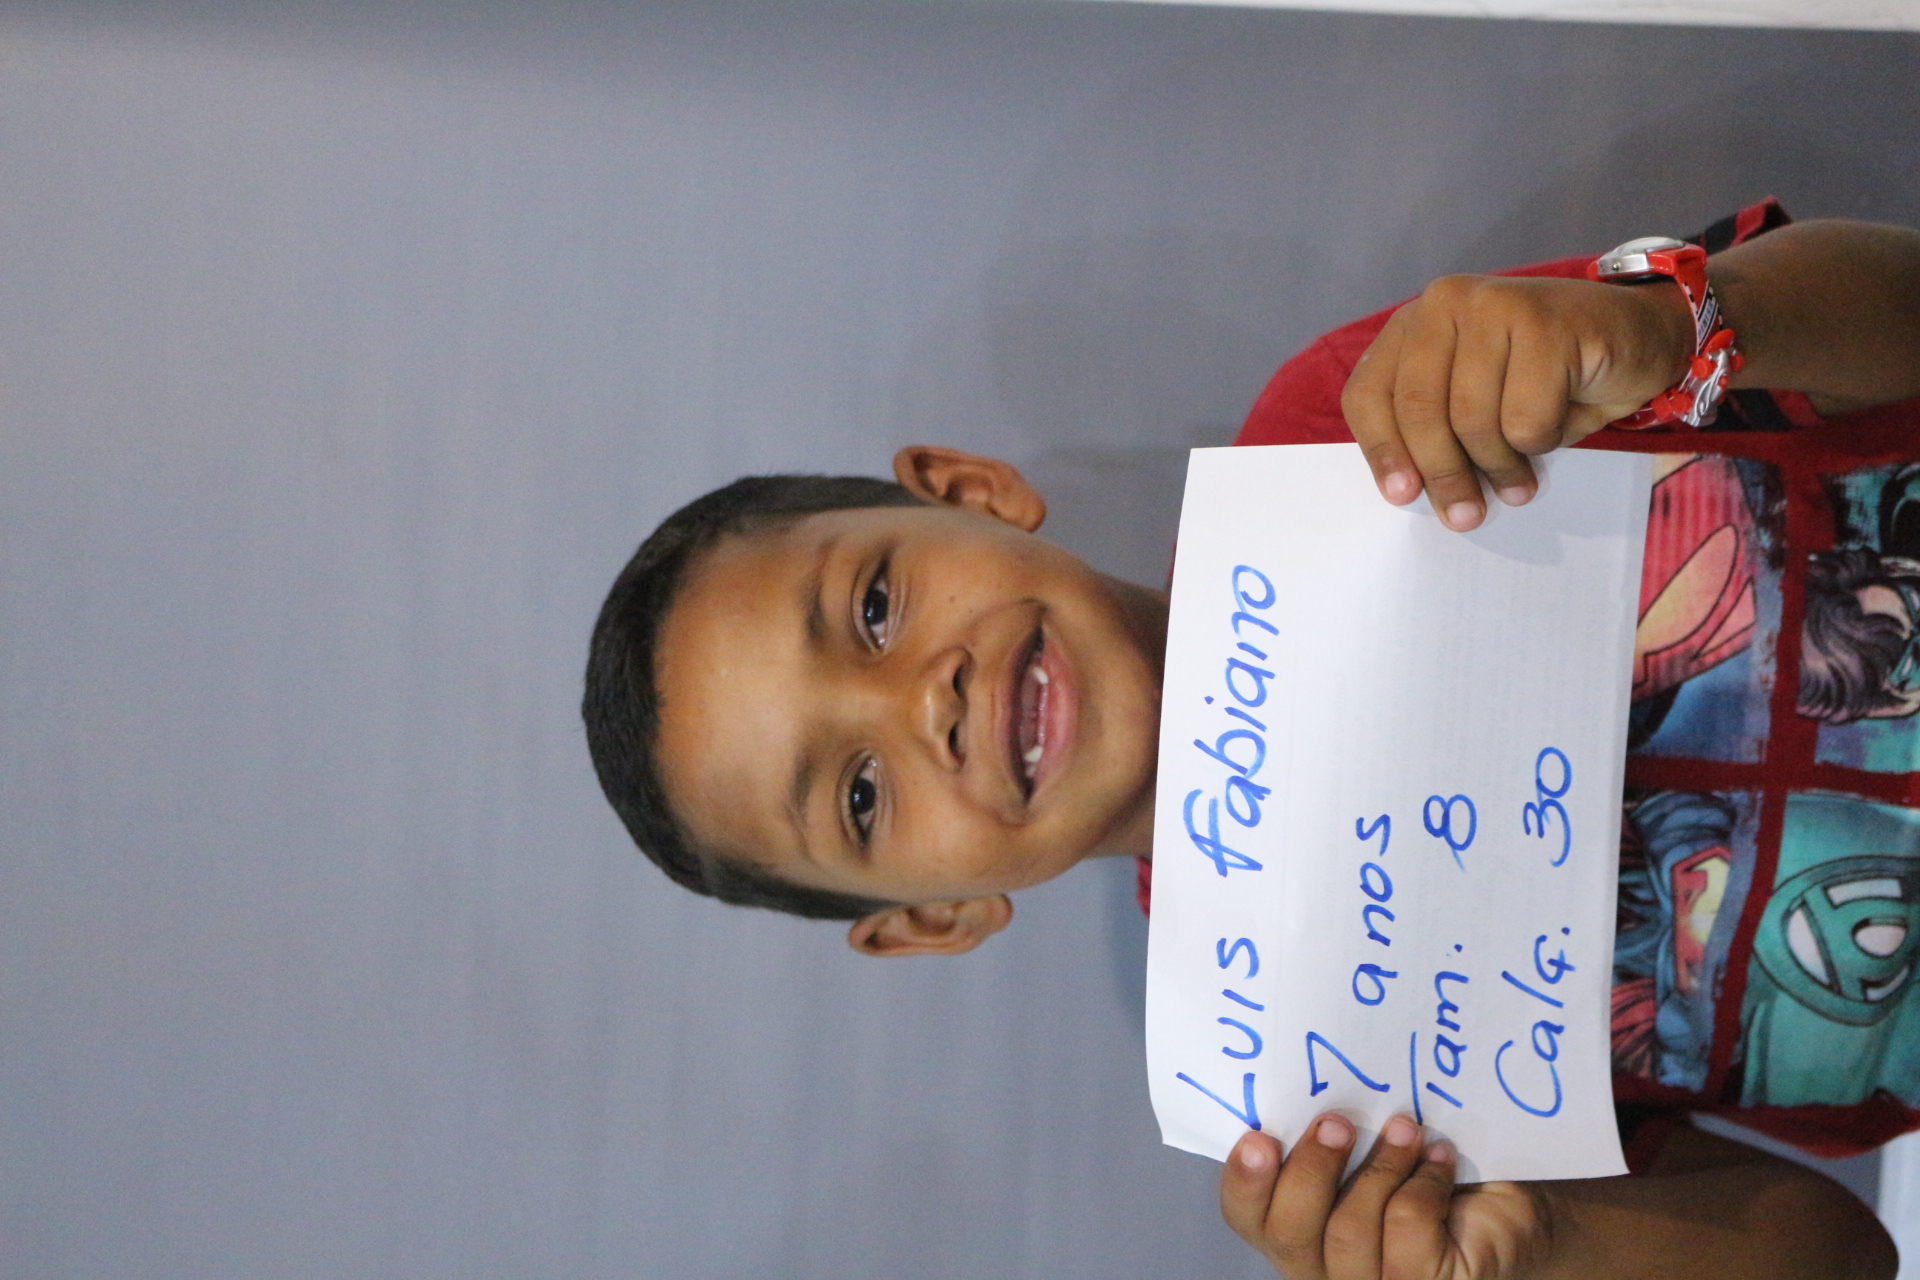 Luis Fabiano
7 anos
Tam. 8
Calç. 30